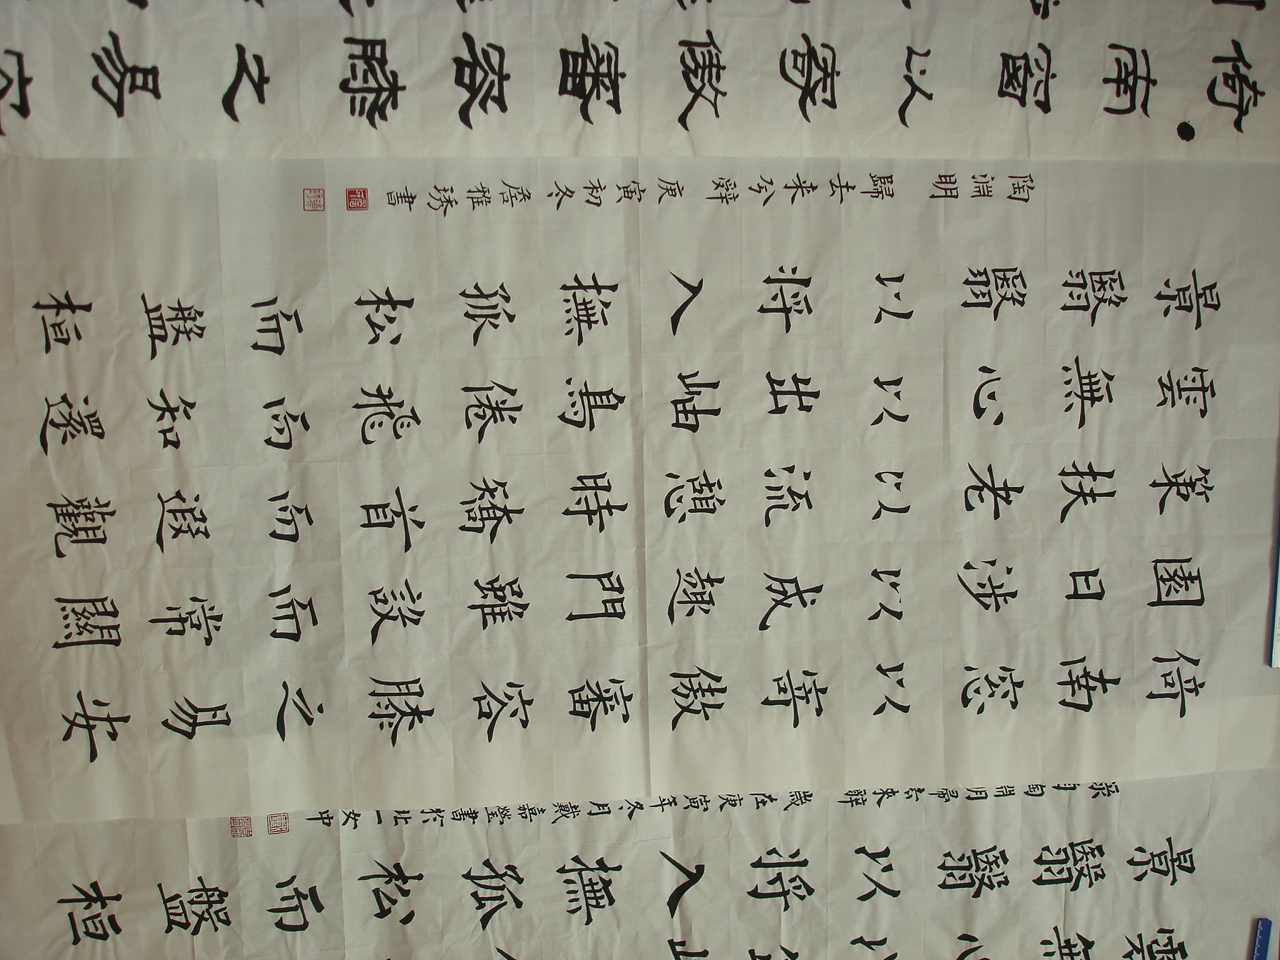 景翳翳以將入撫孤松而盤桓
錄自陶淵明歸去來辭 歲在庚寅年冬月戴嘉瑩書於北一女中
倚南窓以寄傲審容膝之易安
園日涉以成趣門雖設而常關
策扶老以流憩時矯首而遐觀
雲無心以出岫鳥倦飛而知還
景翳翳以將入撫孤松而盤桓
陶淵明歸去来兮辭庚寅初冬詹雅琇書
倚南窗以寄傲審容膝之易安